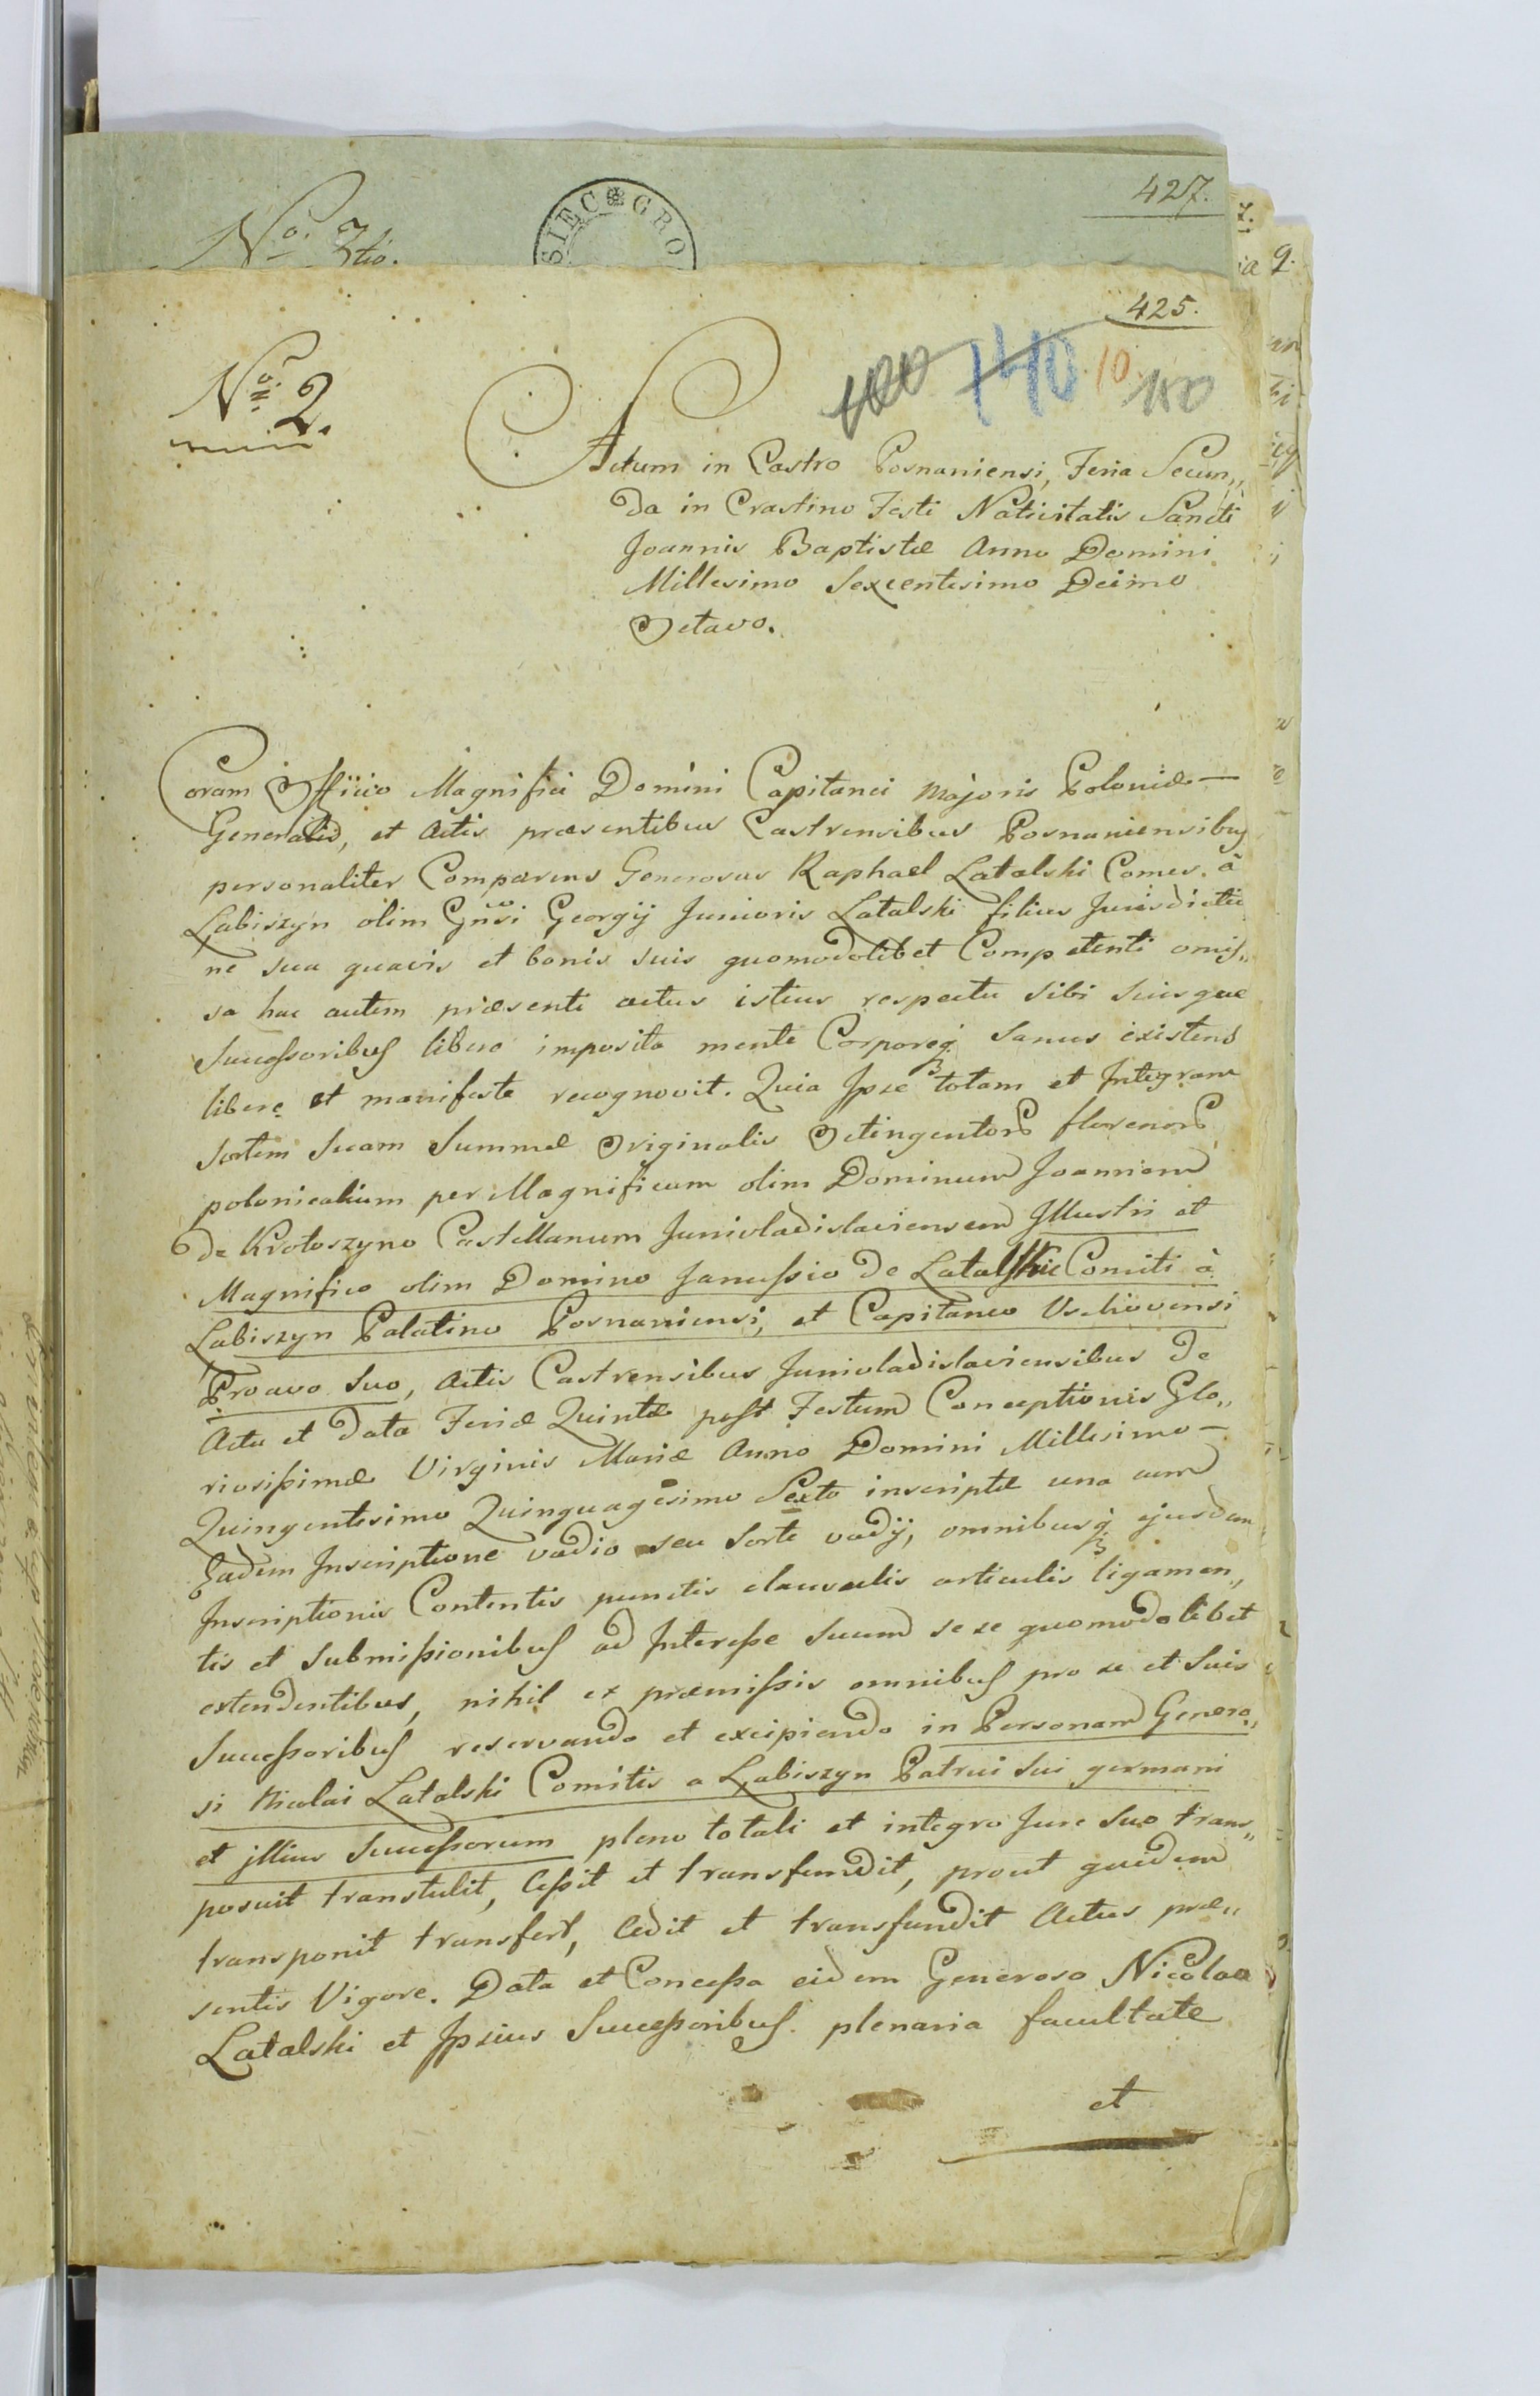 427.
No. 3tio.
SIEC ❉ GRO
425.
100 140 10. 150
No. 2.
Actum in Castro Posnaniensi, Feria Secun„
da in Crastino Festi Nativitatis Sancti
Joannis Baptistæ Anno Domini
Millesimo Sexcentesimo Decimo
Octavo.
Coram Officio Magnifici Domini Capitanei Majoris Poloniæ —
Generalis, et Actis præsentibus Castrensibus Posnaniensibus
personaliter Comparens Generosus Raphael Latalski Comes. à
Labiszyn olim Gnsi Georgij Junioris Latalski filius Jurisdictio
ne sua quavis et bonis suis quomodolibet Competenti omis„
sa hac autem præsenti actus istius respectu sibi suisque
Successoribus libere imposita mente Corporeq. Sanus existens
libere et manifeste recognovit. Quia Ipse totam et Integram
sortem Suam Summæ Originalis Octingentor florenor
polonicalium per Magnificum olim Dominum Joannem
de Krotoszyno Castellanum Junivladislaviensem Illustri et
Magnifico olim Domino Janussio de Latalskie Comiti à
Labiszyn Palatino Posnaniensi, et Capitaneo Uschovensi
Proavo Suo, Actis Castrensibus Junivladislaviensibus de
Actu et Data Feriæ Quintæ post Festum Conceptionis Glo„
riosissimæ Virginis Mariæ Anno Domini Millesimo —
Quingentesimo Quinquagesimo Sexto inscriptæ una cum
Eadem Inscriptione vadio seu Sorte vadij, omnibusq. ejusdem
Inscriptionis Contentis punctis clausulis articulis ligamen„
tis et Submissionibus ad Interesse Suum sese quomodolibet
extendentibus, nihil ex præmissis omnibus pro se et Suis
Successoribus reservando et excipiendo in Personam Genero„
si Nicolai Latalski Comitis a Labiszyn Patrui Sui germani
et illius Successorum pleno totali et integro Jure Suo trans„
posuit transtulit, Cessit et transfundit, prout quidem
transponit transfert, Cedit et transfundit Actus præ„
sentis Vigore. Data et Concessa eidem Generoso Nicolao
Latalski et Ipsius Successoribus. plenaria facultate
et